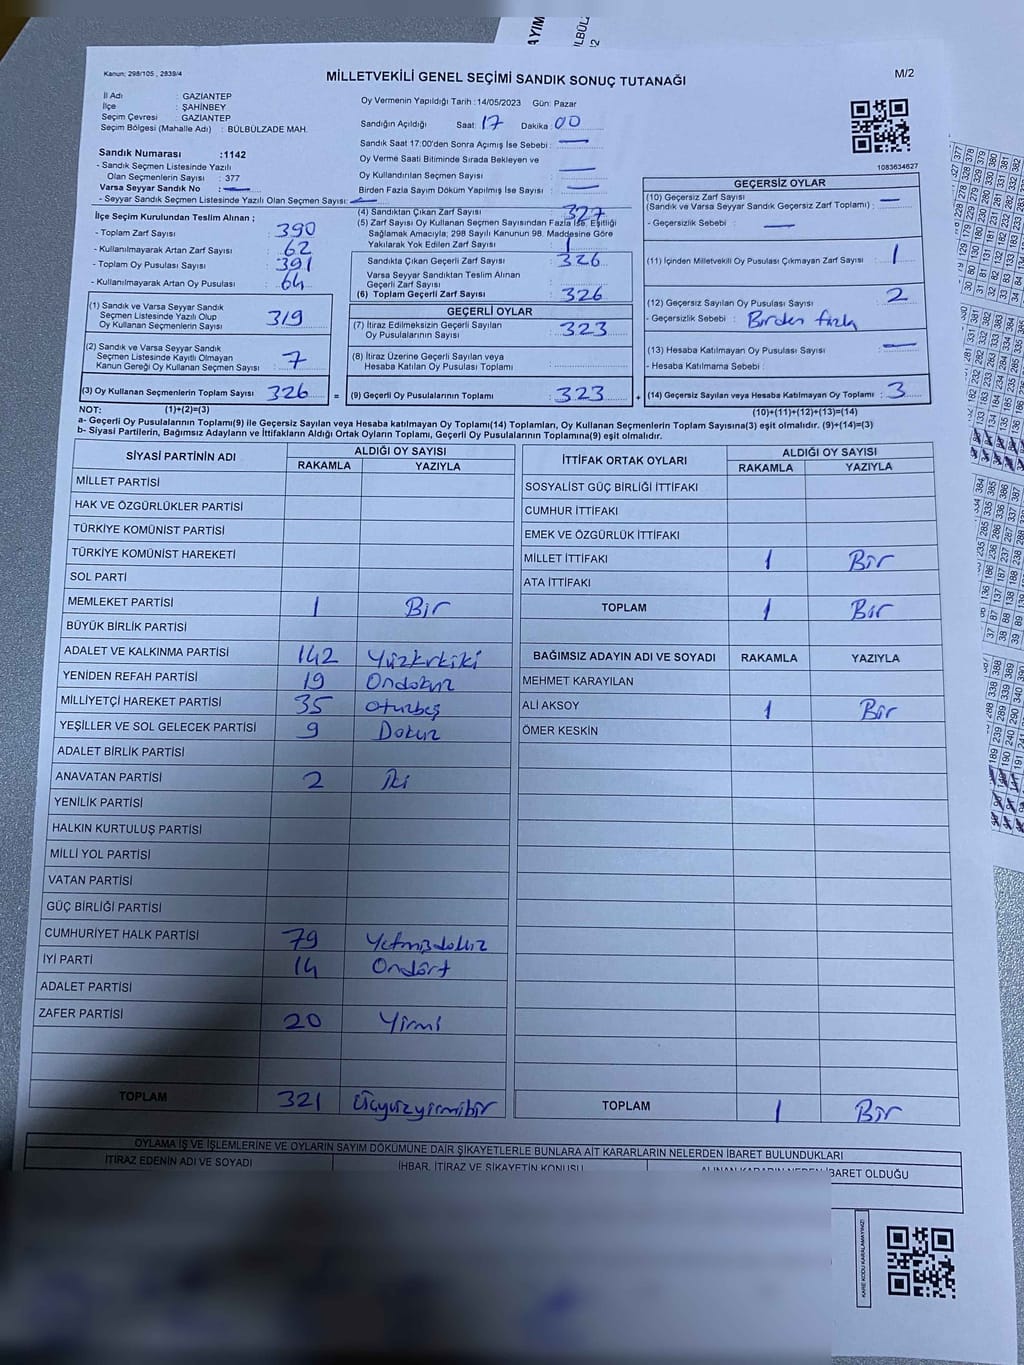 Kanun; 298/105 , 2839/4
MİLLETVEKİLİ GENEL SEÇİMİ SANDIK SONUÇ TUTANAĞI
M/2
İl Adı : GAZİANTEP
İlçe : ŞAHİNBEY
Seçim Çevresi : GAZİANTEP
Seçim Bölgesi (Mahalle Adı) : BÜLBÜLZADE MAH.
Sandık Numarası :1142
- Sandık Seçmen Listesinde Yazılı
Olan Seçmenlerin Sayısı : 377
Varsa Seyyar Sandık No : —
- Seyyar Sandık Seçmen Listesinde Yazılı Olan Seçmen Sayısı: —
Oy Vermenin Yapıldığı Tarih :14/05/2023 Gün: Pazar
Sandığın Açıldığı Saat: 17 Dakika : 00
Sandık Saat 17:00'den Sonra Açımış İse Sebebi : —
Oy Verme Saati Bitiminde Sırada Bekleyen ve
Oy Kullandırılan Seçmen Sayısı : —
Birden Fazla Sayım Döküm Yapılmış İse Sayısı : —
1083634627
İlçe Seçim Kurulundan Teslim Alınan ;
- Toplam Zarf Sayısı : 390
- Kullanılmayarak Artan Zarf Sayısı : 62
- Toplam Oy Pusulası Sayısı : 391
- Kullanılmayarak Artan Oy Pusulası : 64
(1) Sandık ve Varsa Seyyar Sandık
Seçmen Listesinde Yazılı Olup
Oy Kullanan Seçmenlerin Sayısı : 319
(2) Sandık ve Varsa Seyyar Sandık
Seçmen Listesinde Kayıtlı Olmayan
Kanun Gereği Oy Kullanan Seçmen Sayısı : 7
(3) Oy Kullanan Seçmenlerin Toplam Sayısı : 326 =
(4) Sandıktan Çıkan Zarf Sayısı : 327
(5) Zarf Sayısı Oy Kullanan Seçmen Sayısından Fazla İse, Eşitliği
Sağlamak Amacıyla; 298 Sayılı Kanunun 98. Maddesine Göre
Yakılarak Yok Edilen Zarf Sayısı : 1
Sandıkta Çıkan Geçerli Zarf Sayısı : 326
Varsa Seyyar Sandıktan Teslim Alınan
Geçerli Zarf Sayısı :
(6) Toplam Geçerli Zarf Sayısı : 326
GEÇERLİ OYLAR
(7) İtiraz Edilmeksizin Geçerli Sayılan
Oy Pusulalarının Sayısı : 323
(8) İtiraz Üzerine Geçerli Sayılan veya
Hesaba Katılan Oy Pusulası Toplamı :
(9) Geçerli Oy Pusulalarının Toplamı : 323 +
GEÇERSİZ OYLAR
(10) Geçersiz Zarf Sayısı
(Sandık ve Varsa Seyyar Sandık Geçersiz Zarf Toplamı) : —
- Geçersizlik Sebebi : —
(11) İçinden Milletvekili Oy Pusulası Çıkmayan Zarf Sayısı : 1
(12) Geçersiz Sayılan Oy Pusulası Sayısı : 2
- Geçersizlik Sebebi : Birden fazla
(13) Hesaba Katılmayan Oy Pusulası Sayısı : —
- Hesaba Katılmama Sebebi :
(14) Geçersiz Sayılan veya Hesaba Katılmayan Oy Toplamı : 3
NOT: (1)+(2)=(3)
(10)+(11)+(12)+(13)=(14)
a- Geçerli Oy Pusulalarının Toplamı(9) ile Geçersiz Sayılan veya Hesaba katılmayan Oy Toplamı(14) Toplamları, Oy Kullanan Seçmenlerin Toplam Sayısına(3) eşit olmalıdır. (9)+(14)=(3)
b- Siyasi Partilerin, Bağımsız Adayların ve İttifakların Aldığı Ortak Oyların Toplamı, Geçerli Oy Pusulalarının Toplamına(9) eşit olmalıdır.
SİYASİ PARTİNİN ADI ALDIĞI OY SAYISI
RAKAMLA YAZIYLA
MİLLET PARTİSİ
HAK VE ÖZGÜRLÜKLER PARTİSİ
TÜRKİYE KOMÜNİST PARTİSİ
TÜRKİYE KOMÜNİST HAREKETİ
SOL PARTİ
MEMLEKET PARTİSİ 1 Bir
BÜYÜK BİRLİK PARTİSİ
ADALET VE KALKINMA PARTİSİ 142 Yüzkırkiki
YENİDEN REFAH PARTİSİ 19 Ondokuz
MİLLİYETÇİ HAREKET PARTİSİ 35 otuzbeş
YEŞİLLER VE SOL GELECEK PARTİSİ 9 Dokuz
ADALET BİRLİK PARTİSİ
ANAVATAN PARTİSİ 2 İki
YENİLİK PARTİSİ
HALKIN KURTULUŞ PARTİSİ
MİLLİ YOL PARTİSİ
VATAN PARTİSİ
GÜÇ BİRLİĞİ PARTİSİ
CUMHURİYET HALK PARTİSİ 79 Yetmişdokuz
İYİ PARTİ 14 Ondört
ADALET PARTİSİ
ZAFER PARTİSİ 20 Yirmi
TOPLAM 321 Üçyüzyirmibir
İTTİFAK ORTAK OYLARI ALDIĞI OY SAYISI
RAKAMLA YAZIYLA
SOSYALİST GÜÇ BİRLİĞİ İTTİFAKI
CUMHUR İTTİFAKI
EMEK VE ÖZGÜRLÜK İTTİFAKI
MİLLET İTTİFAKI 1 Bir
ATA İTTİFAKI
TOPLAM 1 Bir
BAĞIMSIZ ADAYIN ADI VE SOYADI RAKAMLA YAZIYLA
MEHMET KARAYILAN
ALİ AKSOY 1 Bir
ÖMER KESKİN
TOPLAM 1 Bir
OYLAMA İŞ VE İŞLEMLERİNE VE OYLARIN SAYIM DÖKÜMÜNE DAİR ŞİKAYETLERLE BUNLARA AİT KARARLARIN NELERDEN İBARET BULUNDUKLARI
İTİRAZ EDENİN ADI VE SOYADI
İHBAR, İTİRAZ VE ŞİKAYETİN KONUSU
ALINAN KARARIN NEDEN İBARET OLDUĞU
KARE KODU KARALAMAYINIZ!